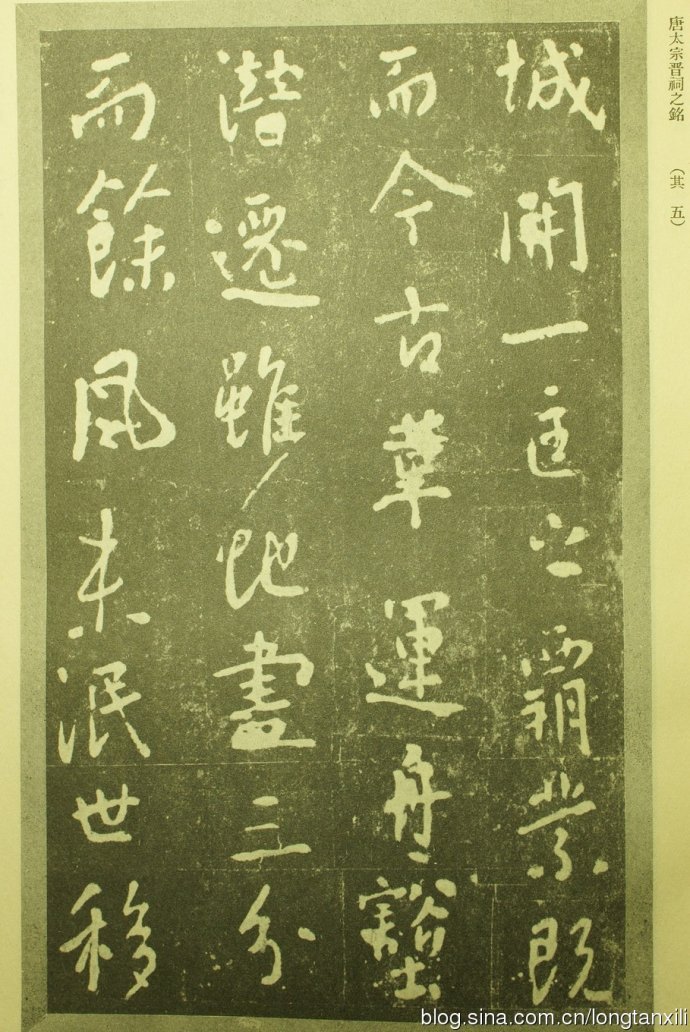 唐太宗晋祠之銘 (其五)
城開一匡之霸業既
而今古革運舟壑
潜遷雖地盡三分
而餘風未泯世移
blog.sina.com.cn/longtanxili